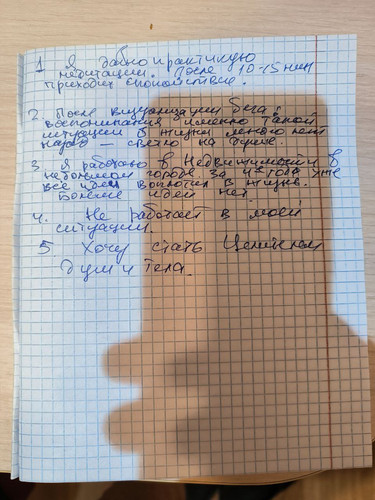 1 Я давно практикую
медитации. После 10-15 мин
приходит спокойствие.
2. После визуализации бега и
воспоминания именно такой
ситуации в жизни много лет
назад — светло на душе.
3. Я работаю в Недвижимости в
небольшом городе. За 4 года уже
все идеи воплотил в жизнь.
Больше идей нет.
4. Не работает в моей
ситуации.
5 Хочу стать Целителем
души и тела.